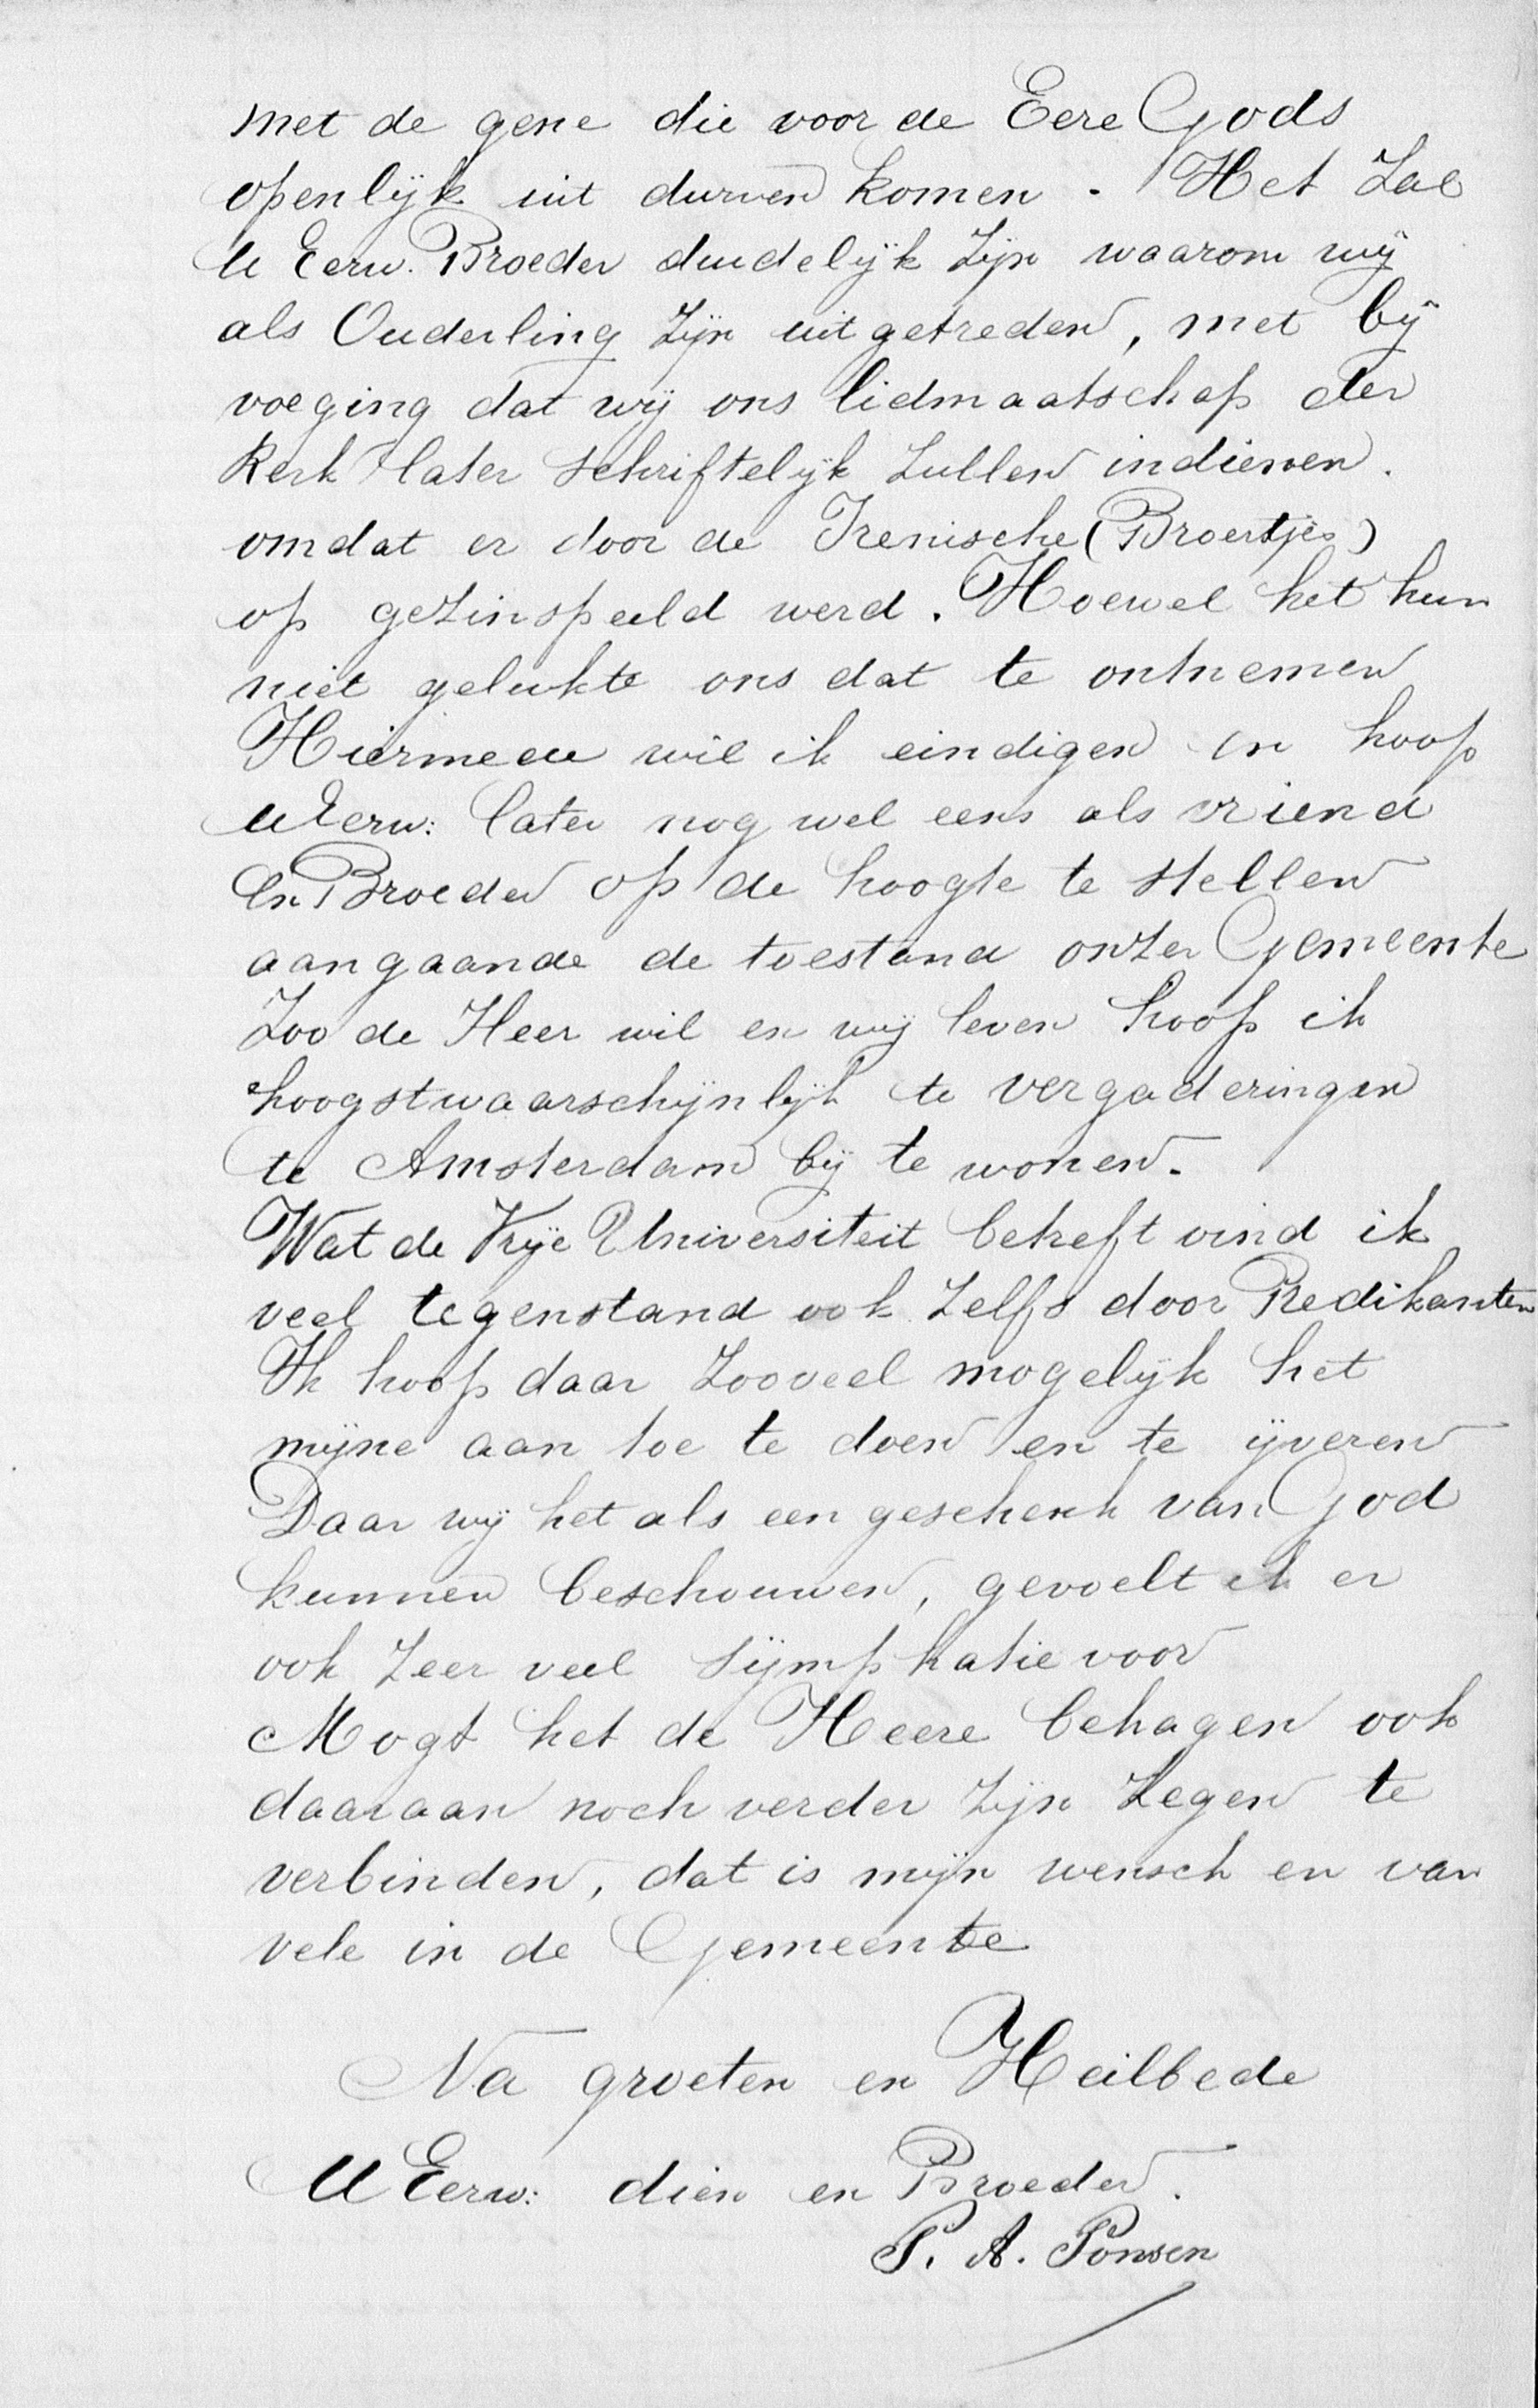 met de gene die voor de Eere Gods
openlijk uit durven komen. Het Zal
U Eerw. Broeder duidelijk Zijn waarom wij
als Ouderling Zijn uitgetreden, met bij
voeging dat wij ons lidmaatschap der
Kerk later schriftelijk Zullen indienen.
omdat er door de Irenische (Broertjes)
op gezinspeeld werd. Hoewel het hun
niet gelukte ons dat te ontnemen
Hiermeeu wil ik eindigen in hoop
UEerw: later nog wel eens als vriend
En Broeder op de hoogte te stellen
aangaande de toestand onzer Gemeente
Zoo de Heer wil en wij leven hoop ik
hoogstwaarschijnlijk te vergaderingen
te Amsterdam bij te wonen.
Wat de Vrije Universiteit betreft vind ik
veel tegenstand ook Zelfs door Predikanten
Ik hoop daar Zooveel mogelijk het
mijne aan toe te doen en te ijveren
Daar wij het als een geschenk van God
kunnen beschouwen, gevoelt ik er
ook Zeer veel sijmphatie voor
Mogt het de Heere behagen ook
daaraan noch verder Zijn Zegen te
verbinden, dat is mijn wensch en van
vele in de Gemeente
Na groeten en Heilbede
U Eerw: dien en Broeder.
P. A. Ponsen